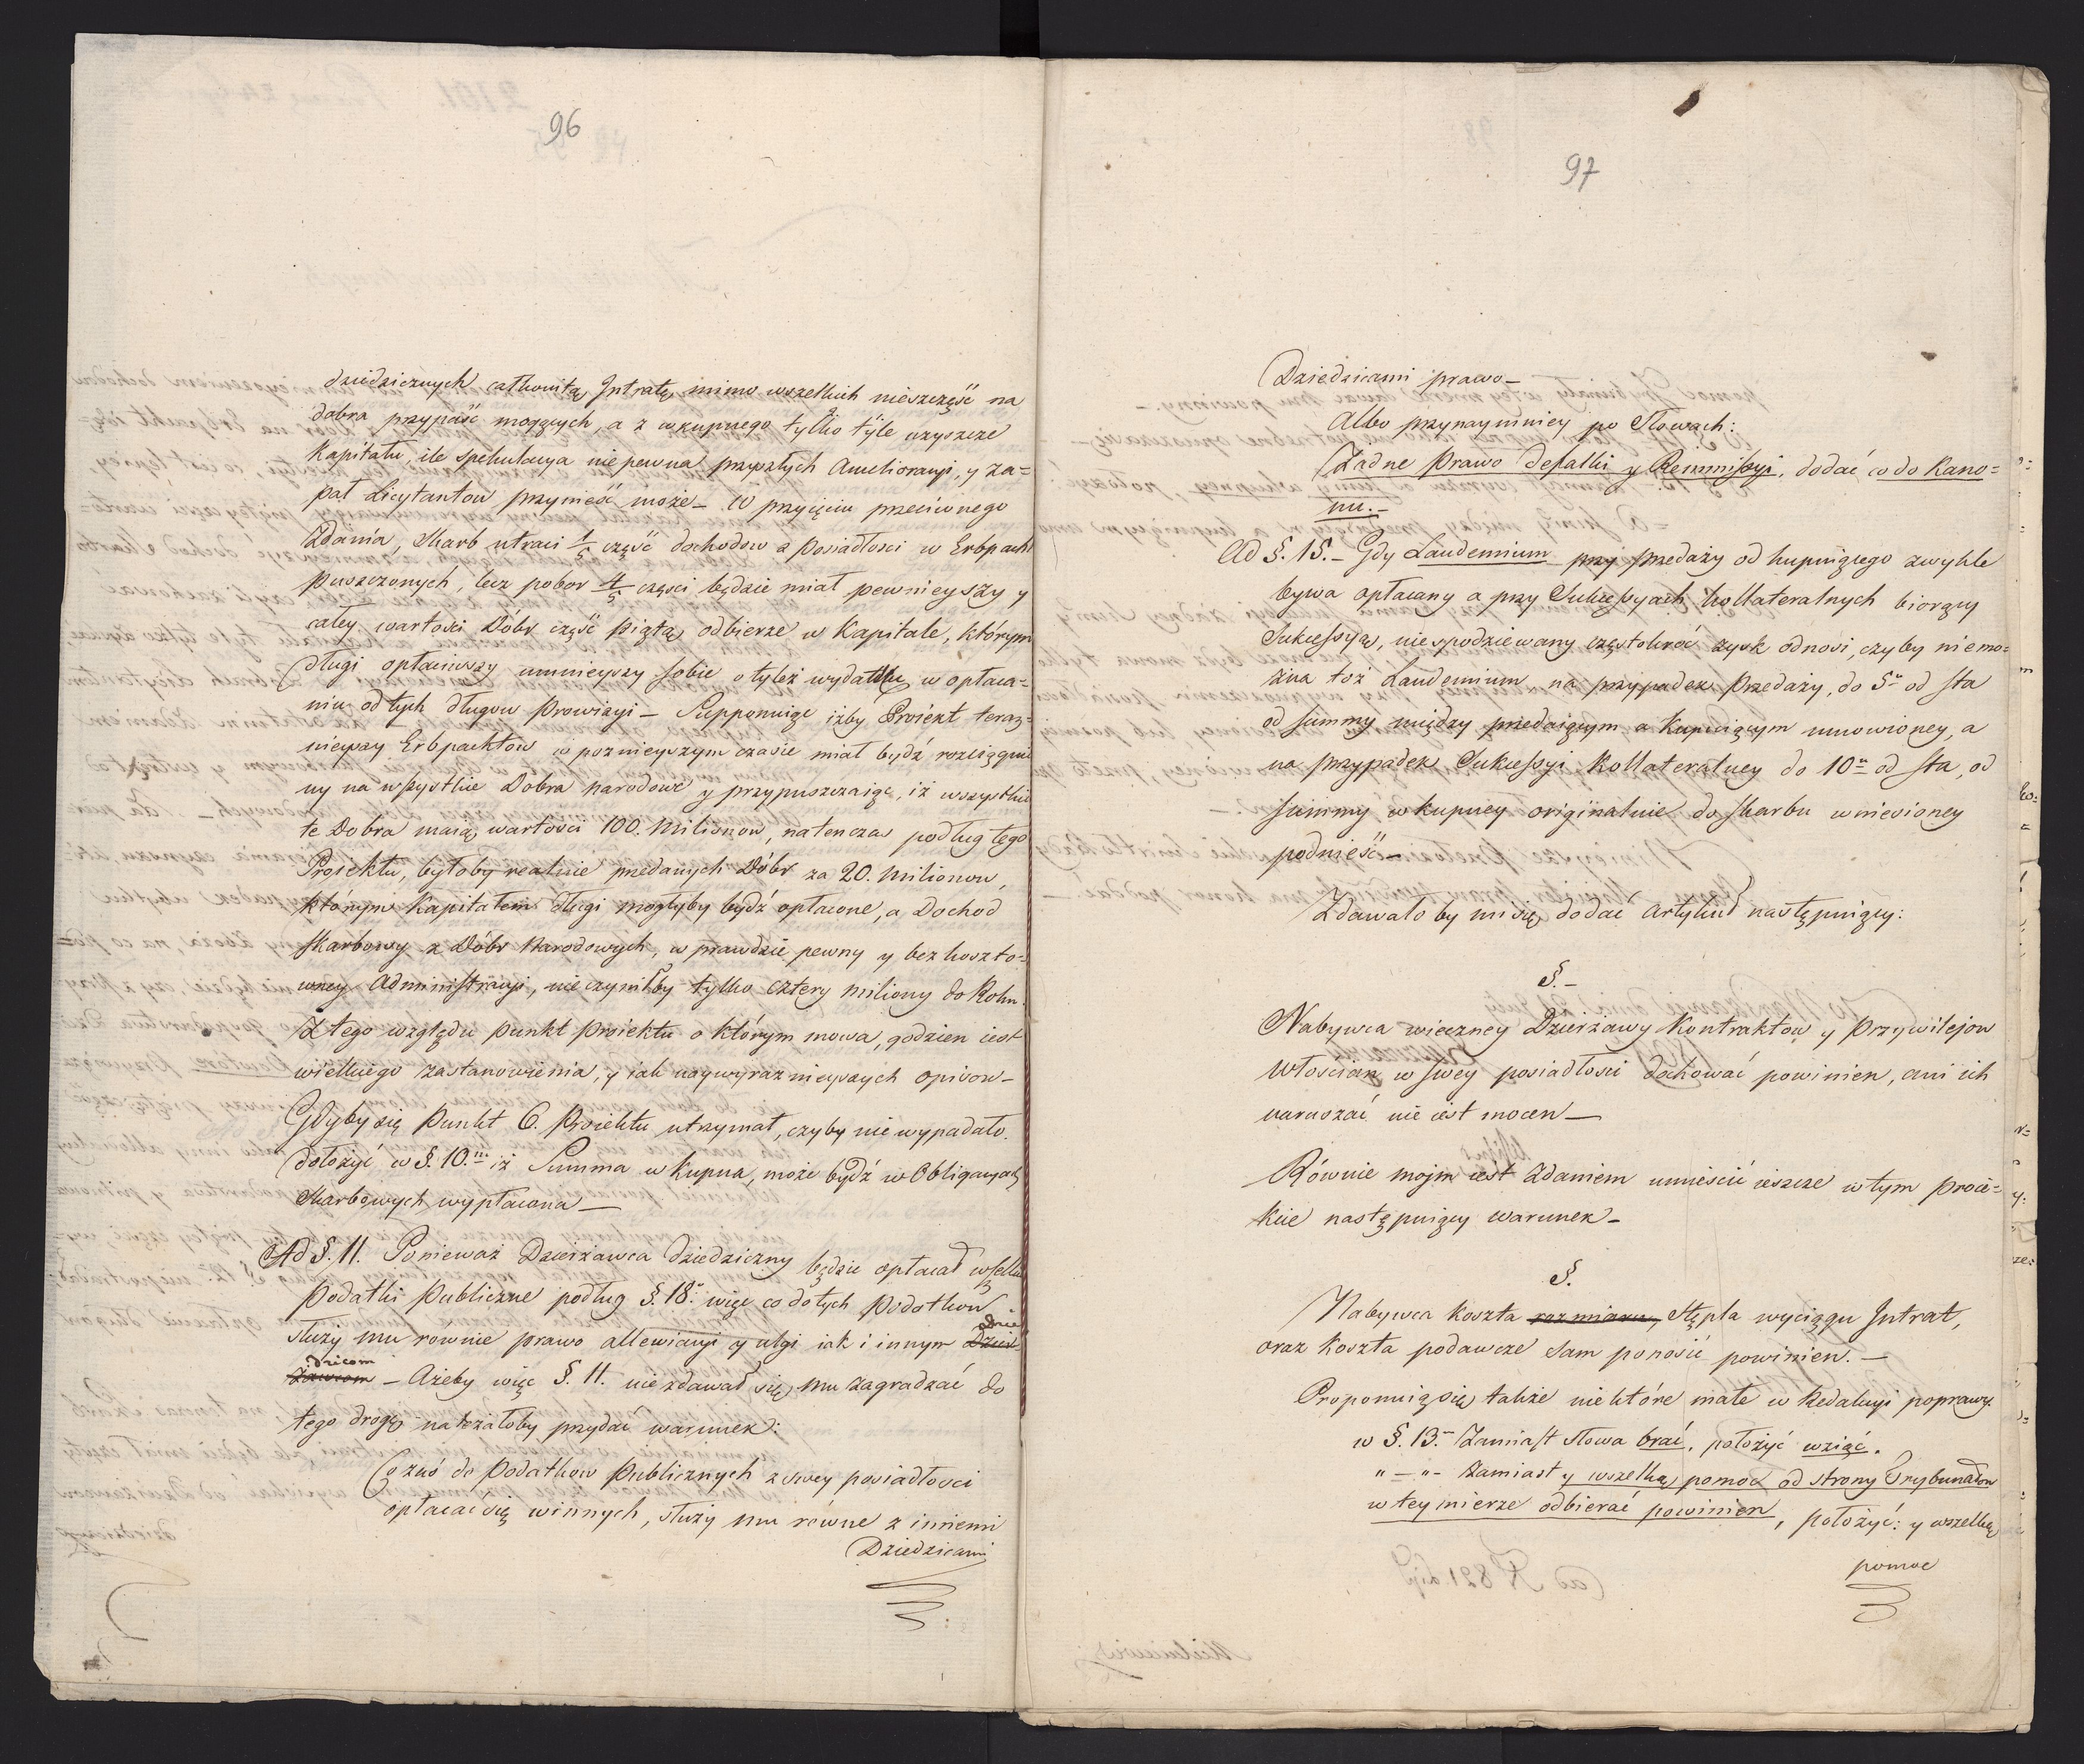 96
dziedzicznych całkowitą Intratę, mimo wszelkich nieszczęść na
dobra przypaść mogących, a z wkupnego tylko tyle uzyszcze
Kapitału, ile spekulacya niepewna przyszłych Amelioracyi, y za=
pał Licytantow przynieść może — W przyięciu przeciwnego
Zdania, Skarb utraci 1/5 część dochodow a posiadłosci w Erbpacht
puszczonych, lecz pobor 4/5 częsci będzie miał pewnieyszy y
całey wartości Dóbr część piątą odbierze w Kapitale, którym
długi opłaciwszy umnieyszy sobie o tyleż wydatku w opłaca=
niu od tych długow Prowizyi — Supponuiąc iżby Proiekt teraz=
nieyszy Erbpachtow w poznieyszym czasie miał bydź rozciągnio
ny na wszystkie Dobra narodowe y przypuszczaiąc, iż wszystkie
te Dobra maią wartości 100. Milionow, natenczas podług tego
Proiektu, byłoby realnie przedanych Dóbr za 20. Milionow,
którym Kapitałem długi mogłyby bydź opłacone, a Dochod
Skarbowy z Dóbr Narodowych, w prawdzie pewny y bez koszto=
wney Administracyi, nie czyniłby tylko cztery miliony do Roku.
Z tego względu punkt Proiektu o którym mowa, godzien iest
wielkiego zastanowienia, y iak naywyraznieyszych opisow —
Gdyby się Punkt 6. Proiektu utrzymał, czyby nie wypadało
dołożyć w §. 10.m iż Summa wkupna, może bydź w Obligacyach
Skarbowych wypłacona —
Ad §. 11. Ponieważ Dzierżawca dziedziczny będzie opłacał wszelkie
Podatki Publiczne podług §. 18. więc co do tych Podatkow
służy mu równie prawo allewiacyi y ulgi iak i innym Dzier
dzie
żawcom
dzicom
— Ażeby więc §. 11. nie zdawał się mu zagradzać do
tego drogę należałoby przydać warunek:
Co zaś do Podatkow Publicznych z swey posiadłosci
opłacać się winnych, służy mu równe z innemi
Dziedzicami
97
Dziedzicami prawo —
Albo przynaymniey po Słowach:
Żadne Prawo defalki y Remmissyi, dodać co do Kano=
nu. —
Ad §. 15. — Gdy Laudemium przy przedaży od kupuiącego zwykle
bywa opłacany a przy Sukcessyach kollateralnych biorący
Sukcessyą, niespodziewany częstokroć zysk odnosi, czyby niemo=
żna toż Laudemium na przypadek Przedaży, do 5u od sta
od summy między przedaiącym a kupuiącym umowioney, a
na przypadek Sukcessyi Kollateralney do 10u od sta, od
summy wkupney originalnie do Skarbu wniesioney
podnieść —
Zdawałoby mi się dodać artykuł następuiący:
§. —
Nabywca wieczney Dzierżawy Kontraktow y Przywilejow
Włościan w swey posiadłosci dochować powinien, ani ich
naruszać nie iest mocen —
Równie moim iest zdaniem umieścić ieszcze w tym proie=
kcie następuiący warunek —
§.
Nabywca koszta rozmiaru, Stępla wyciągu Intrat,
oraz koszta podawcze sam ponosić powinien. —
Proponuią się także niektóre małe w Redakcyi poprawy.
w §. 13. Zamiast Słowa brać, położyć wziąć.
" — " — zamiast y wszelką pomoc od strony Trybunałow
w tey mierze odbierać powinien, położyć: y wszelką
pomoc